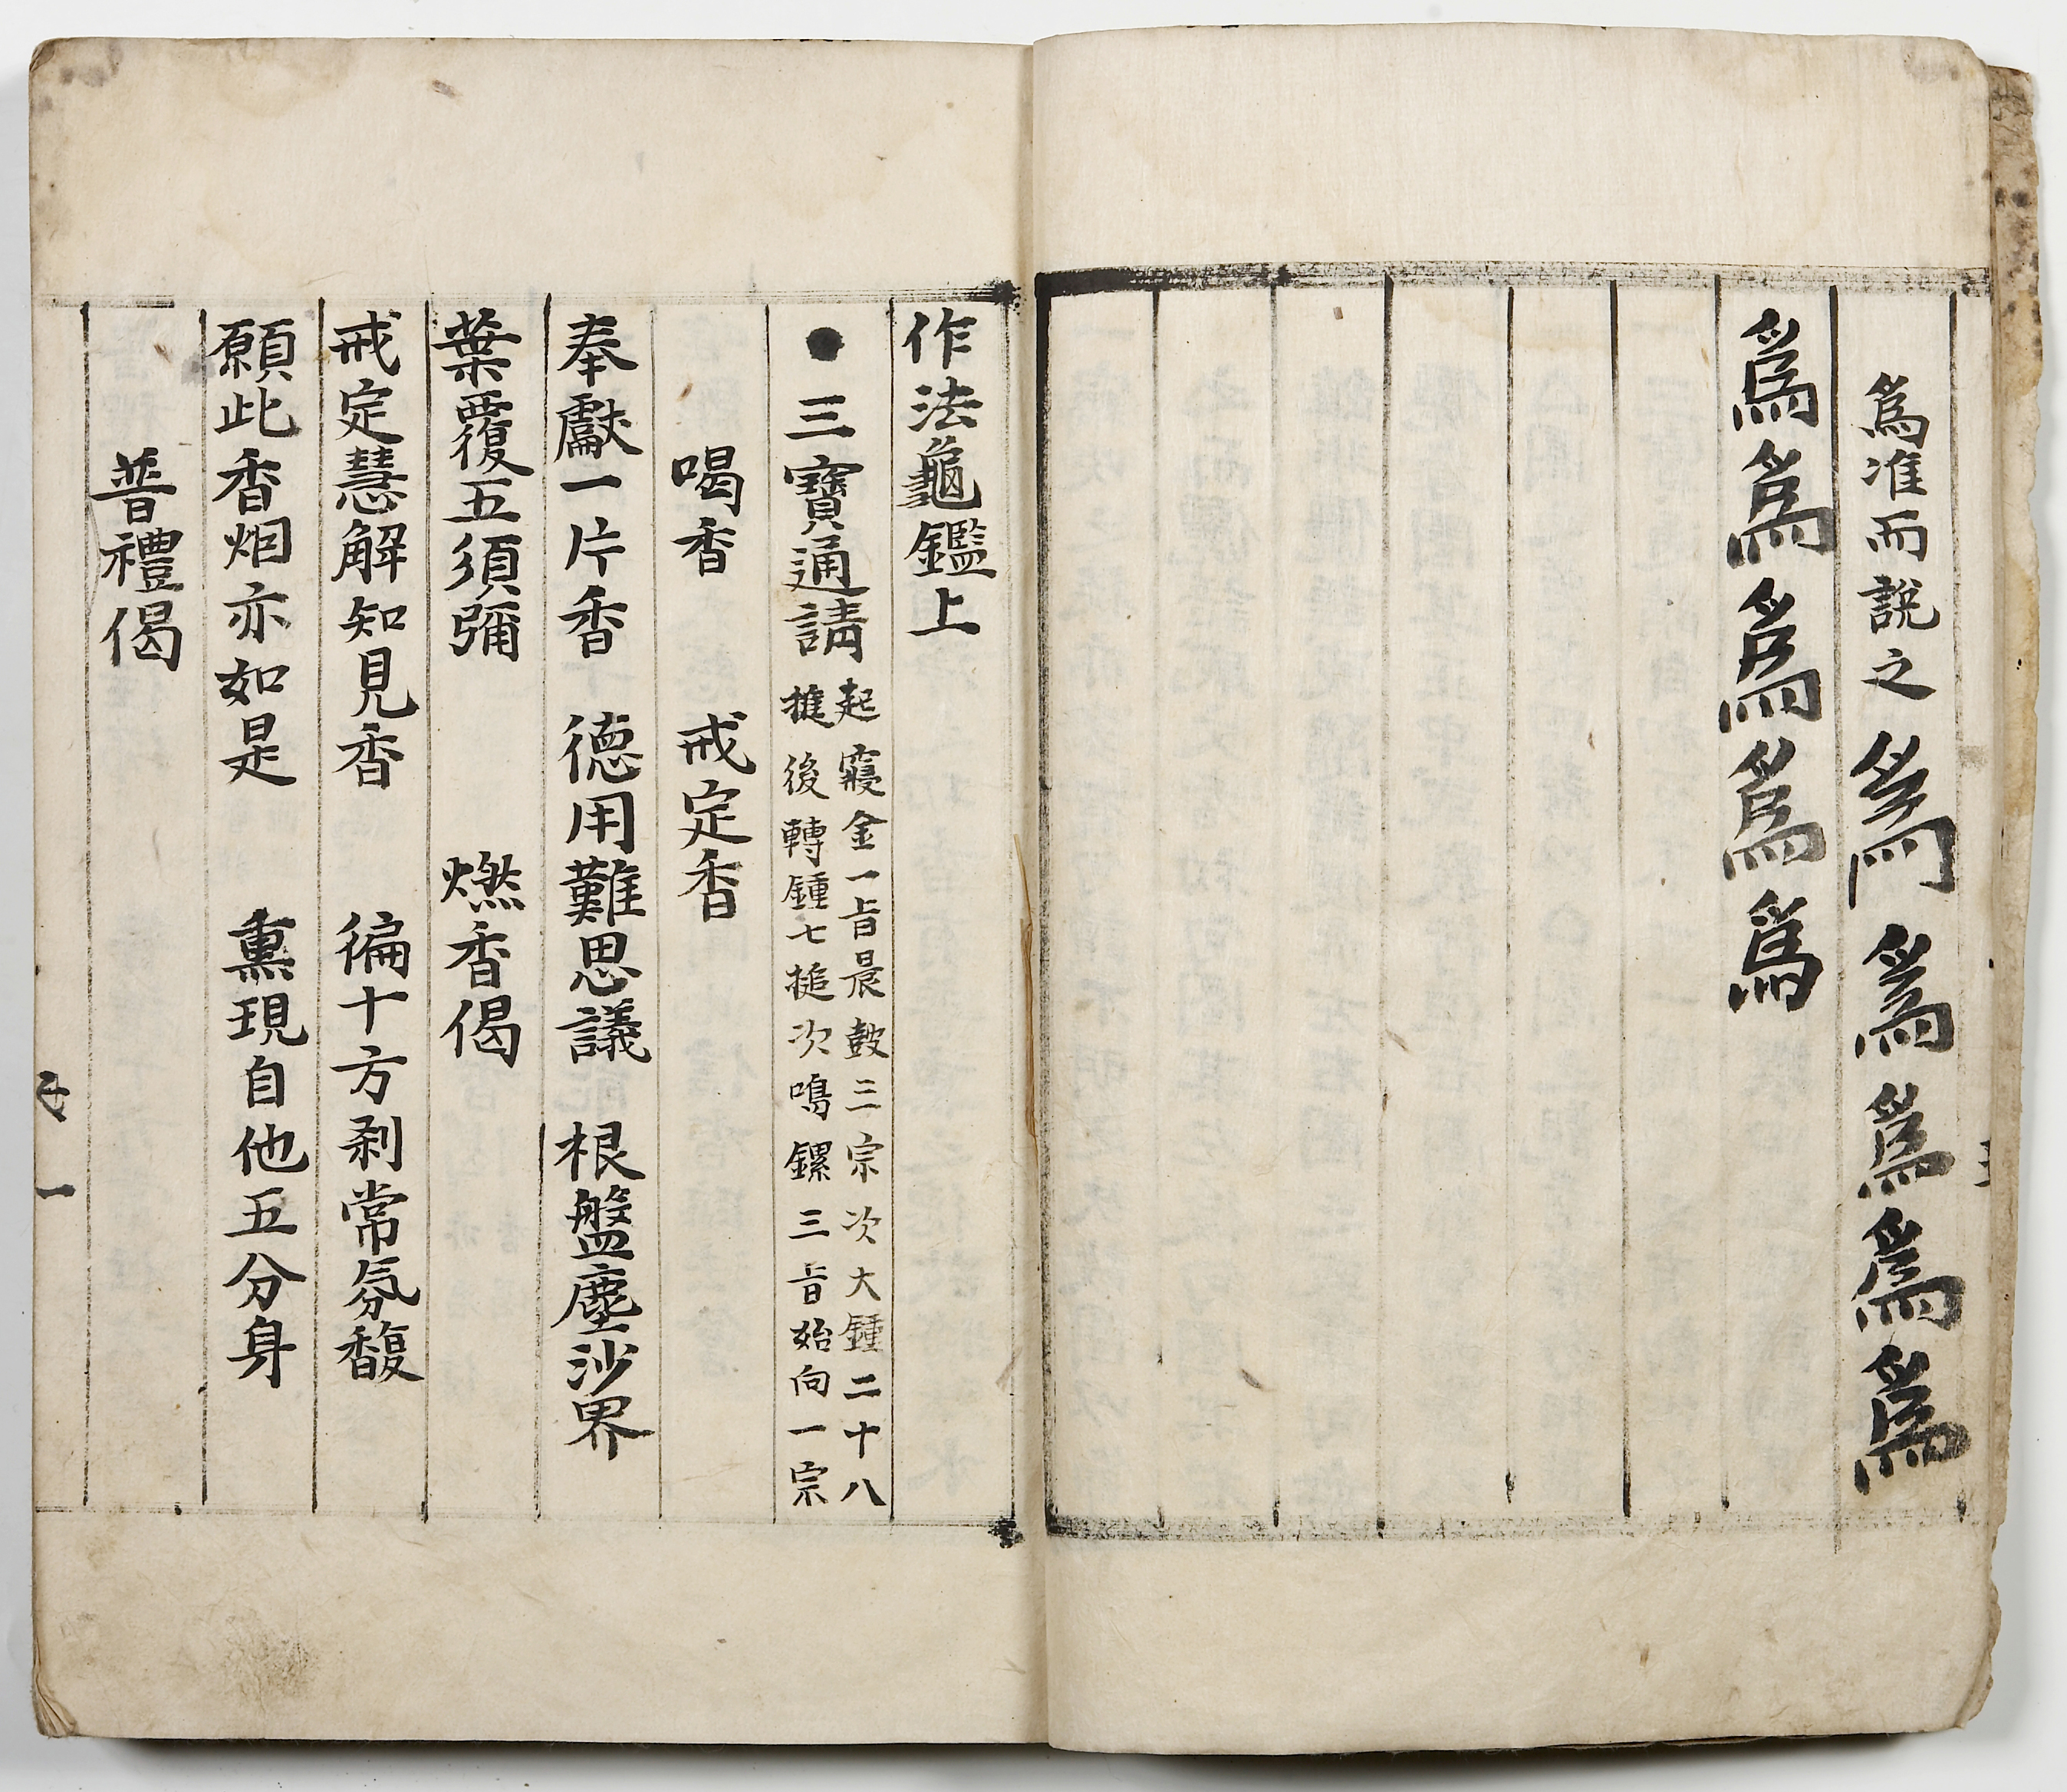 爲准而說之爲爲爲爲爲
爲爲爲爲爲
作法龜鑑上
●三寶通請
起寢金一旨晨鼓三宗次大鍾二十八
搥後轉鍾七搥次鳴鏍三旨始向一宗
喝香 戒定香
奉獻一片香 德用難思議 根盤塵沙界
葉覆五須彌 燃香偈
戒定慧解知見香 徧十方剎常氛馥
願此香烟亦如是 熏現自他五分身
普禮偈
一